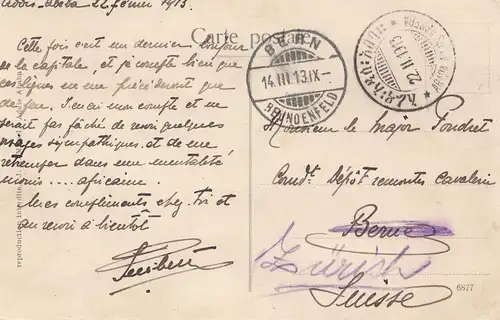 Addis-Abeba 22 février 1913.
Carte postale
Cette fois c'est un dernier bonjour
de la capitale, et je compte bien que
ces lignes ne me précéderont que
de peu. J'en ai mon compte et ne
serait pas fâché de revoir quelques
visages sympathiques et de me
retremper dans une mentalité
moins ... africaine.
Mes compliments chez toi et
au revoir à bientôt
BERN
14.III.13.IX-
BRUNDENFELD
22. II. 1913
Monsieur le Major Poudret
Comdt. Dépôt remontes Cavalerie
Berne
Zürich
Suisse
6877
reproduction interdite